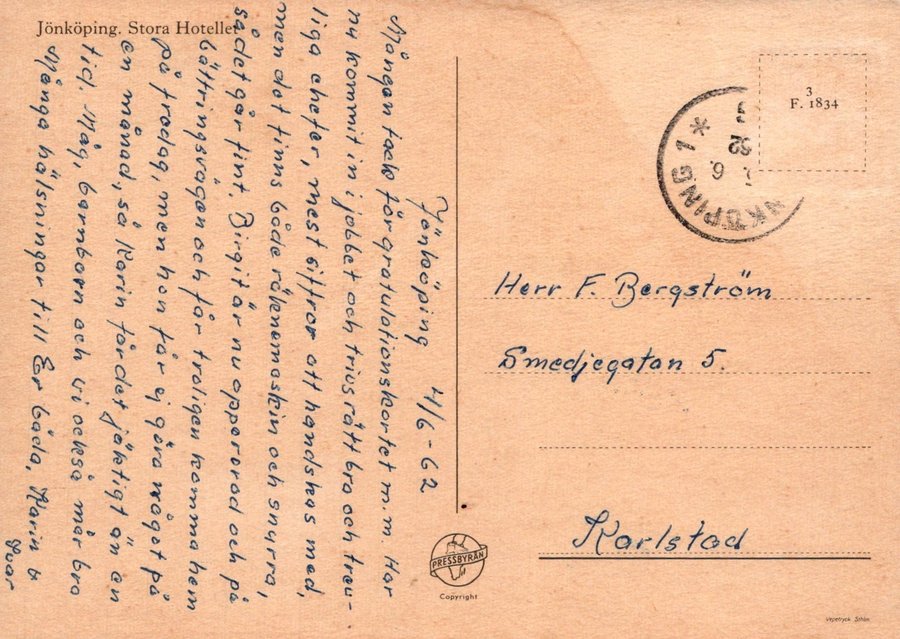 Jönköping. Stora Hotellet
Jönköping 4/6-62
Mången tack för gratulationskortet m.m. Har
nu kommit in i jobbet och trivs rätt bra och trev-
liga chefer, mest siffror att handskas med,
men det finns både räknemaskin och snurra,
så det går fint. Birgit är nu opererad och på
bättringsvägen och får troligen komma hem
på fredag, men hon får ej göra något på
en månad, så Karin får det jäktigt än en
tid. Måg, barnbarn och vi också mår bra
Många hälsningar till Er båda, Karin o
Ivar
3
F. 1834
NKÖPING 1 *
Herr F. Bergström
Smedjegatan 5.
Karlstad
PRESSBYRÅN
Copyright
Vepetryck Sthlm